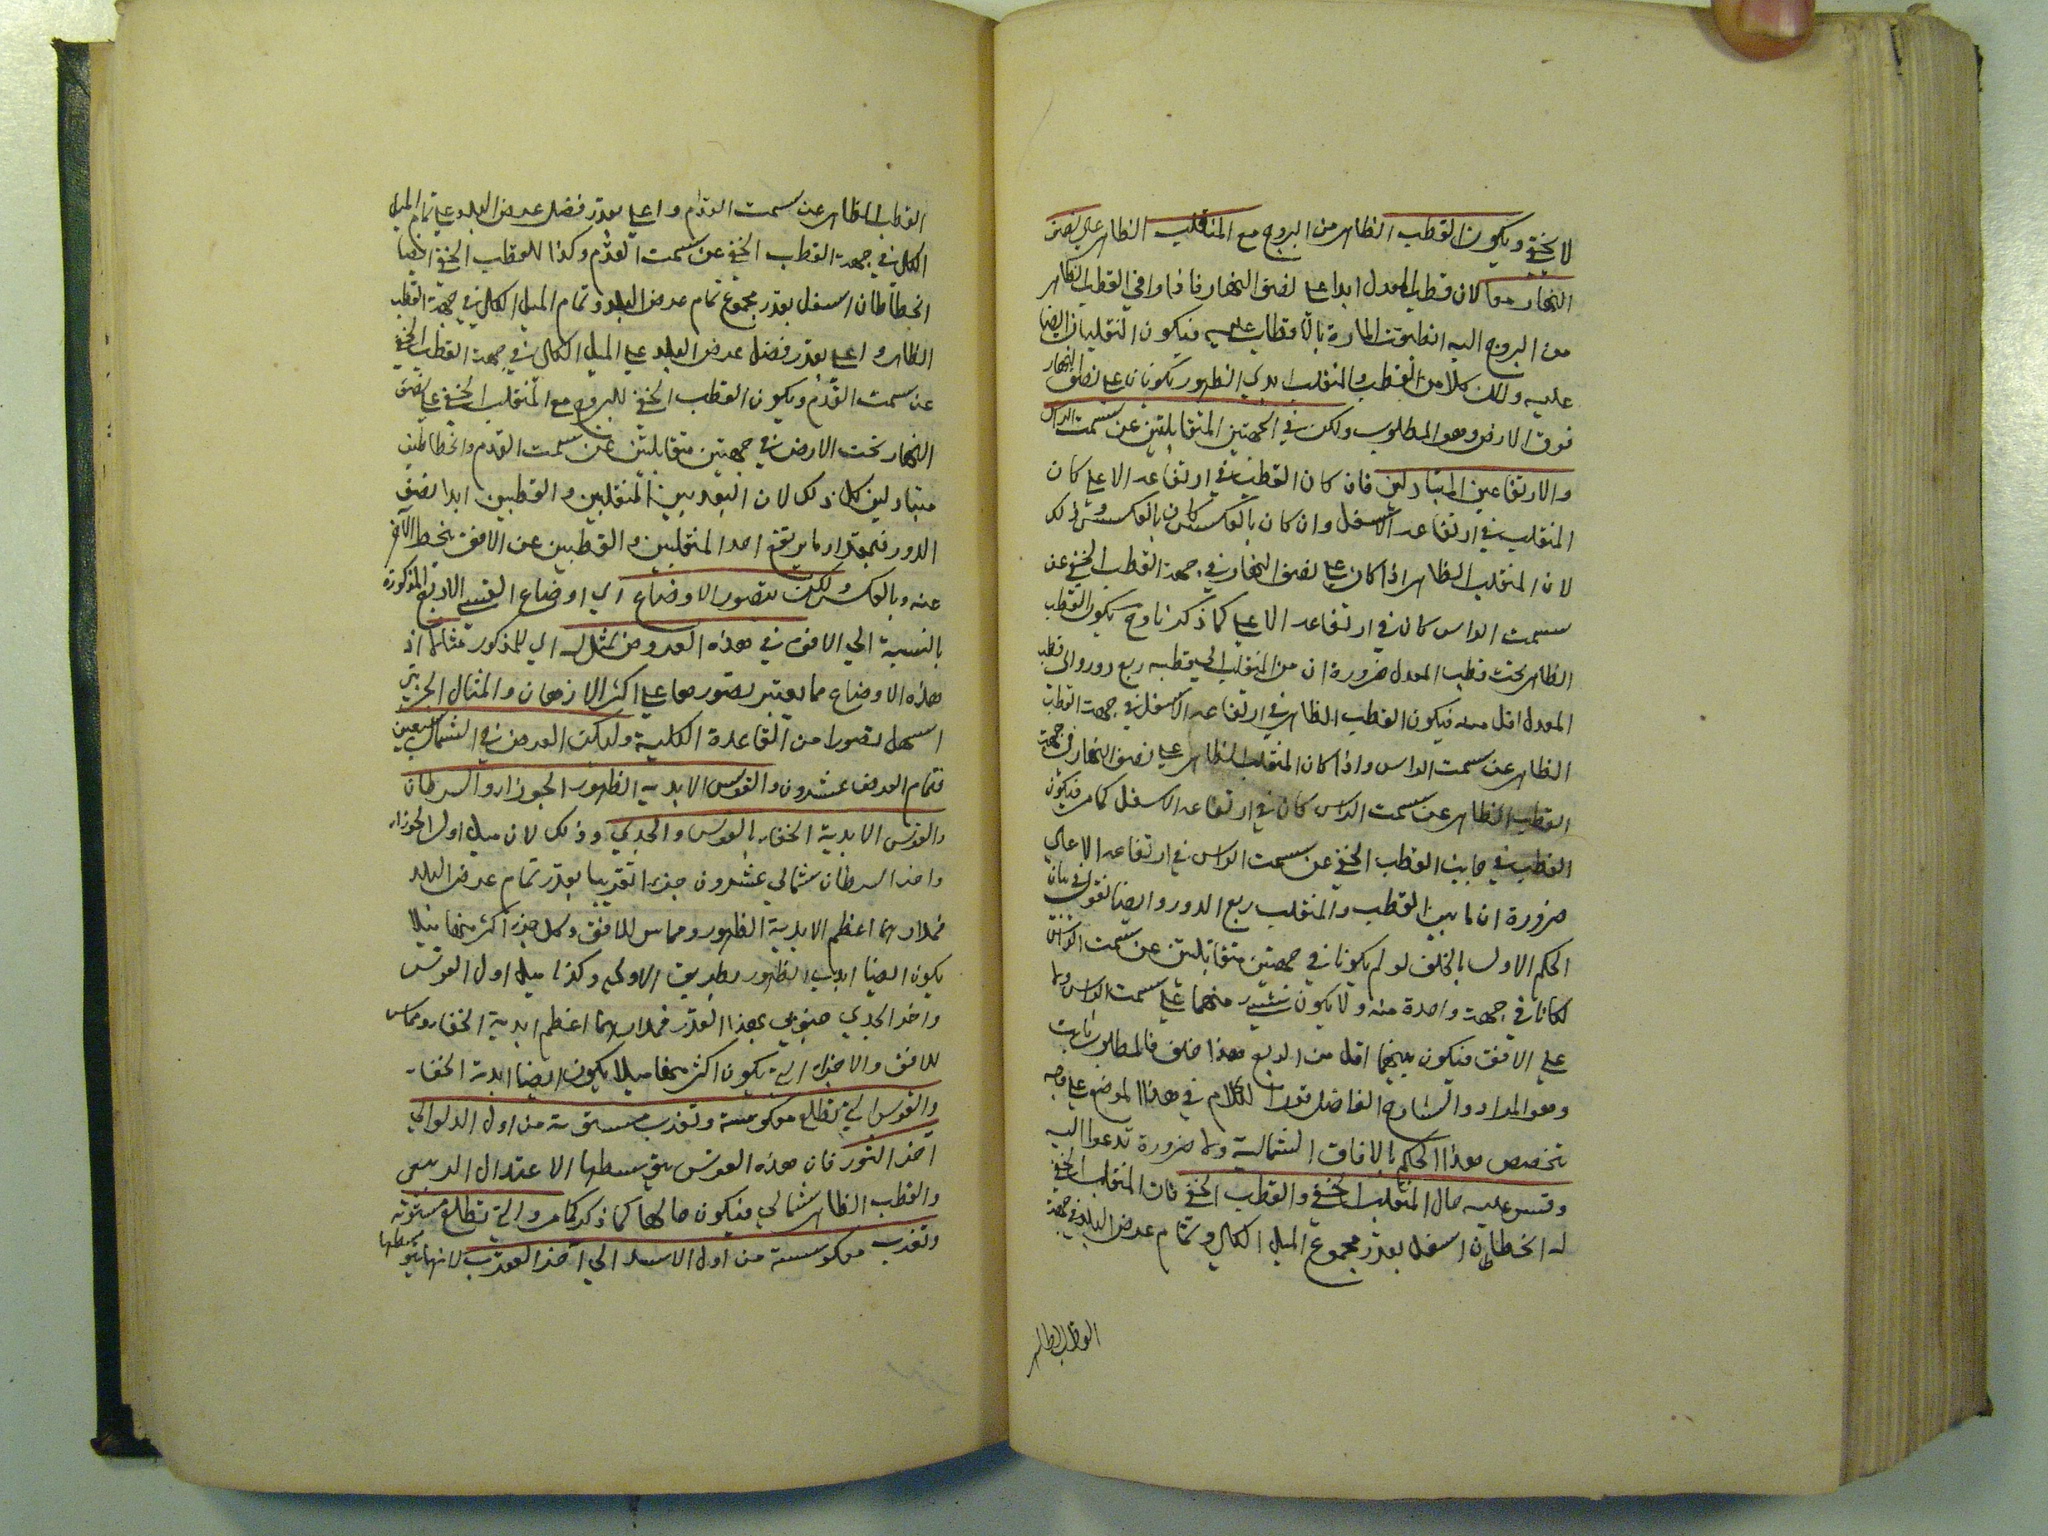 لا يخفى ويكون القطب الظاهر من البروج مع المنقلب الظاهر على نصف
النهار معا لان قطب المعدل ابدا على نصف النهار فاذا وافى القطب الظاهر
من البروج اليه انطبقت المارة بالاقطاب عليه فيكون المنقلبان ايضا
عليه ولان كلا من القطب والمنقلب ابدي الظهور يكونان على نصف النهار
فوق الارض وهو المطلوب ولكن في الجهتين المتقابلتين عن سمت الراس
والارتفاعين المتبادلين فان كان القطب في ارتفاعه الاعلى كان
المنقلب في ارتفاعه الاسفل وان كان بالعكس كان بالعكس وذلك
لان المنقلب الظاهر اذا كان على نصف النهار في جهة القطب الخفي عن
سمت الراس كان في ارتفاعه الاعلى كما ذكرنا وح يكون القطب
الظاهر تحت قطب المعدل ضرورة ان من المنقلب الى قطبه ربع دور والى قطب
المعدل اقل منه فيكون القطب الظاهر في ارتفاعه الاسفل في جهة القطب
الظاهر عن سمت الراس واذا كان المنقلب الظاهر على نصف النهار في جهة
القطب الظاهر عن سمت الراس كان في ارتفاعه الاسفل كما مر فيكون
القطب في جانب القطب الخفي عن سمت الراس في ارتفاعه الاعلى
ضرورة ان ما بين القطب والمنقلب ربع الدور وايضا نقول في بيان
الحكم الاول بالخلف لو لم يكونا في جهتين متقابلتين عن سمت الراس
لكانا في جهة واحدة منه ولا يكون شيء منهما على سمت الراس ولا
على الافق فيكون بينهما اقل من الربع هذا خلف فالمطلوب ثابت
وهو المراد والشارح الفاضل قرر الكلام في هذا الموضع على وجه
تخصص هذا الحكم بالافاق الشمالية ولا ضرورة تدعوا اليه
وقس عليه حال المنقلب الخفي والقطب الخفي فان المنقلب الخفي
له انحطاطان اسفل بقدر مجموع الميل الكلي وتمام عرض البلد في جهة
القطب الظاهر
القطب الظاهر عن سمت القدم واعلى بقدر فضل عرض البلد على تمام الميل
الكلي في جهة القطب الخفي عن سمت القدم وكذا للقطب الخفي ايضا
انحطاطان اسفل بقدر مجموع تمام عرض البلد وتمام الميل الكلي في جهة القطب
الظاهر واعلى بقدر فضل عرض البلد على الميل الكلي في جهة القطب الخفي
عن سمت القدم ويكون القطب الخفي للبروج مع المنقلب الخفي على نصف
النهار تحت الارض في جهتين متقابلتين عن سمت القدم وانحطاطين
متبادلين كل ذلك لان البعد بين المنقلبين والقطبين ابدا نصف
الدور فبمقدار ما يرتفع احد المنقلبين والقطبين عن الافق ينحط الآخر
عنه وبالعكس وليكن تصور الاوضاع اي اوضاع القسي الاربع المذكورة
بالنسبة الى الافق في هذه العروض بمثال اي للمذكور مثالا اذ
هذه الاوضاع مما يعسر تصورها على اكثر الاذهان والمثال الجزئي
اسهل تصورا من القاعدة الكلية وليكن العرض في الشمال سبعين
فتمام العرض عشرون والقوس الابدية الظهور الجوزاء والسرطان
والقوس الابدية الخفاء القوس والجدي وذلك لان ميل اول الجوزاء
واخر السرطان شمالي عشرون جزءا تقريبا بقدر تمام عرض البلد
فمداراهما اعظم الابدية الظهور ومماس للافق وكل جزء اكثر منهما ميلا
يكون ايضا ابدي الظهور بطريق الاولى وكذا ميل اول القوس
واخر الجدي جنوبي بهذا القدر فمداراهما اعظم ابدية الخفاء ومماس
للافق والاجزاء التي يكون اكثر منهما ميلا يكون ايضا ابدية الخفاء
والقوس التي تطلع معكوسة وتغرب مستوية من اول الدلو الى
اخر الثور فان هذه القوس يتوسطها الاعتدال الربيعي
والقطب الظاهر شمالي فيكون حالها كما ذكر كما مر والتي تطلع مستوية
وتغرب معكوسة من اول الاسد الى اخر العقرب لانها يتوسطها